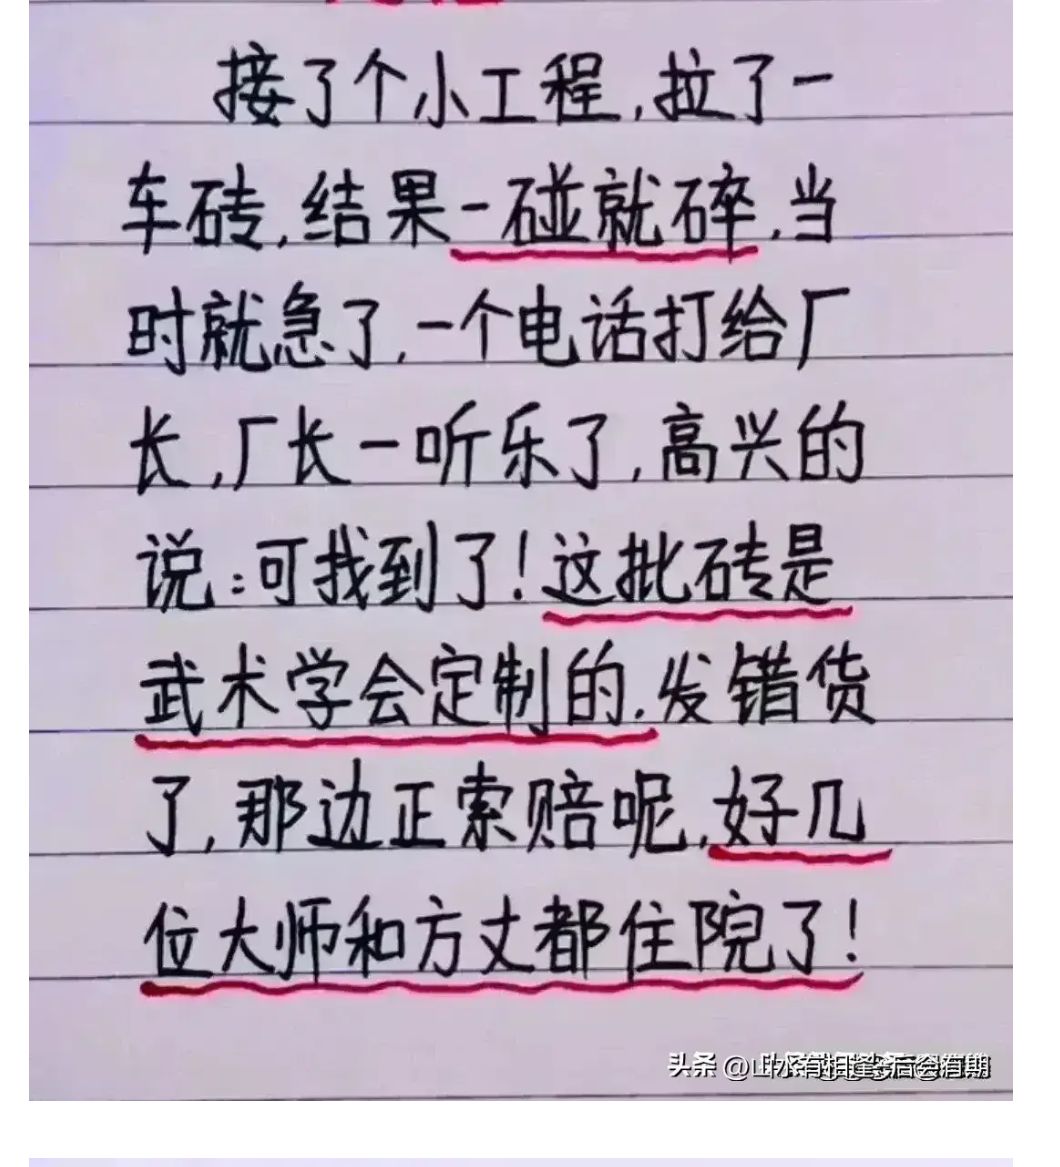 接了个小工程,拉了一
车砖,结果一碰就碎,当
时就急了,一个电话打给厂
长,厂长一听乐了,高兴的
说:可找到了!这批砖是
武术学会定制的.发错货
了,那边正索赔呢,好几
位大师和方丈都住院了!
头条